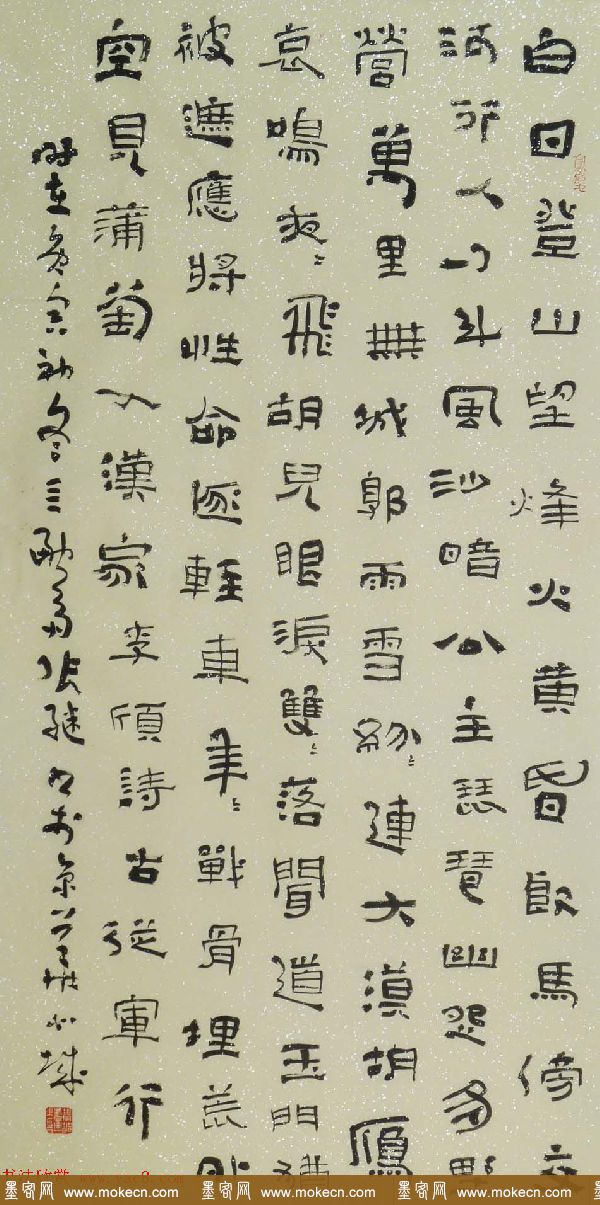 白日登山望烽火黄昏飲馬傍交
河行人刁斗風沙暗公主琵琶幽怨多野
營萬里無城郭雨雪紛〻連大漠胡鴈
哀鳴夜〻飛胡兒眼淚雙〻落聞道玉門猶
被遮應將性命逐輕車年〻戰骨埋荒外
空見蒲萄入漢家李頎詩古從軍行
時在庚寅初冬三融齋張繼書於京華北城
墨客网 www.mokecn.com 墨客网 www.mokecn.com 墨客网 www.mokecn.com